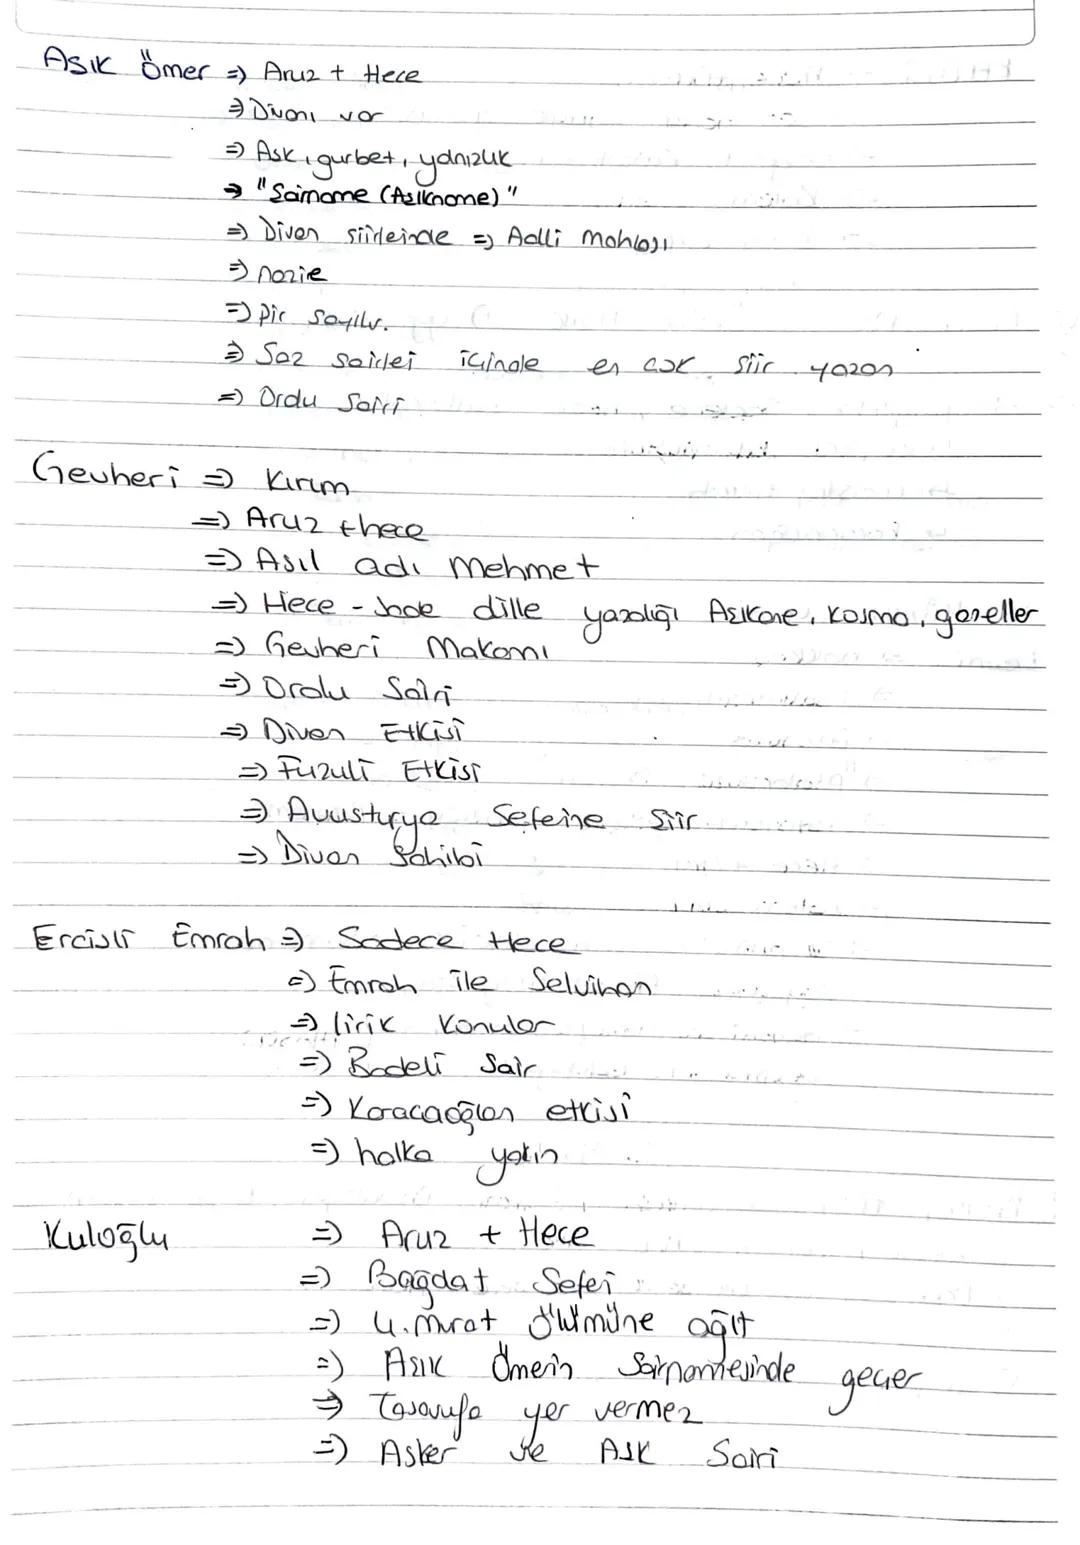 Asık Ömer => Aruz + Hece
=> Divanı var
=> Ask, gurbet, yalnızlık
=> "Sairname (Asıkname)"
=> Divan siirleinde => Adli mahlası
=> nazire
=> pir sayılır.
=> Saz sairlei içinde en cok siir yazan
=> Ordu Sairi
Gevheri => Kırım
=> Aruz + hece
=> Asıl adı Mehmet
=> Hece - sade dille yazdığı Asıkane, kosma, gazeller
=> Gevheri Makamı
=> Ordu Sairi
=> Divan Etkisi
=> Fuzuli Etkisi
=> Avusturya Sefeine Siir
=> Divan Sahibi
Ercisli Emrah => Sadece Hece
=> Emrah ile Selvihan
=> lirik Konular
=> Badeli Sair
=> Karacaoğlan etkisi
=> halka yakın
Kuloğlu => Aruz + Hece
=> Bağdat Sefei
=> 4. murat ölümüne ağıt
=> Asık Ömerin Sairnamesinde geçer
=> Tasavufa yer vermez
=> Asker ve Ask Sairi